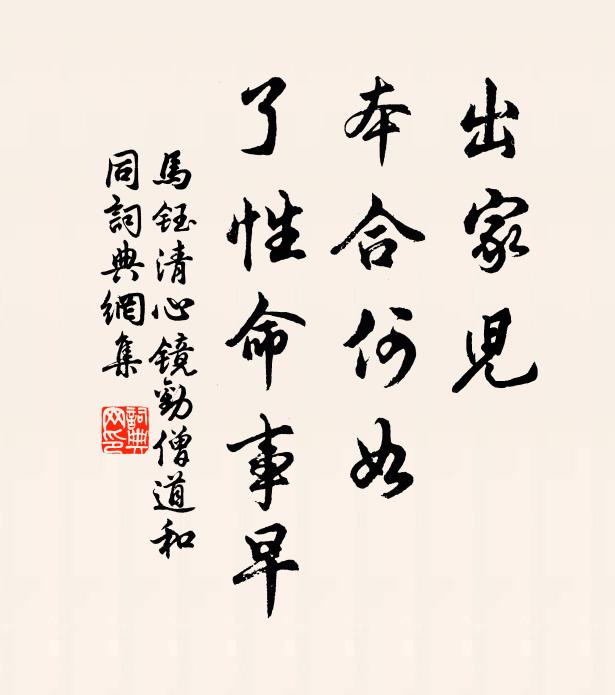 出家兒
本合何如
了性命事早
馬鈺清心鏡勸僧道和
同詞典網集
詞典
网印